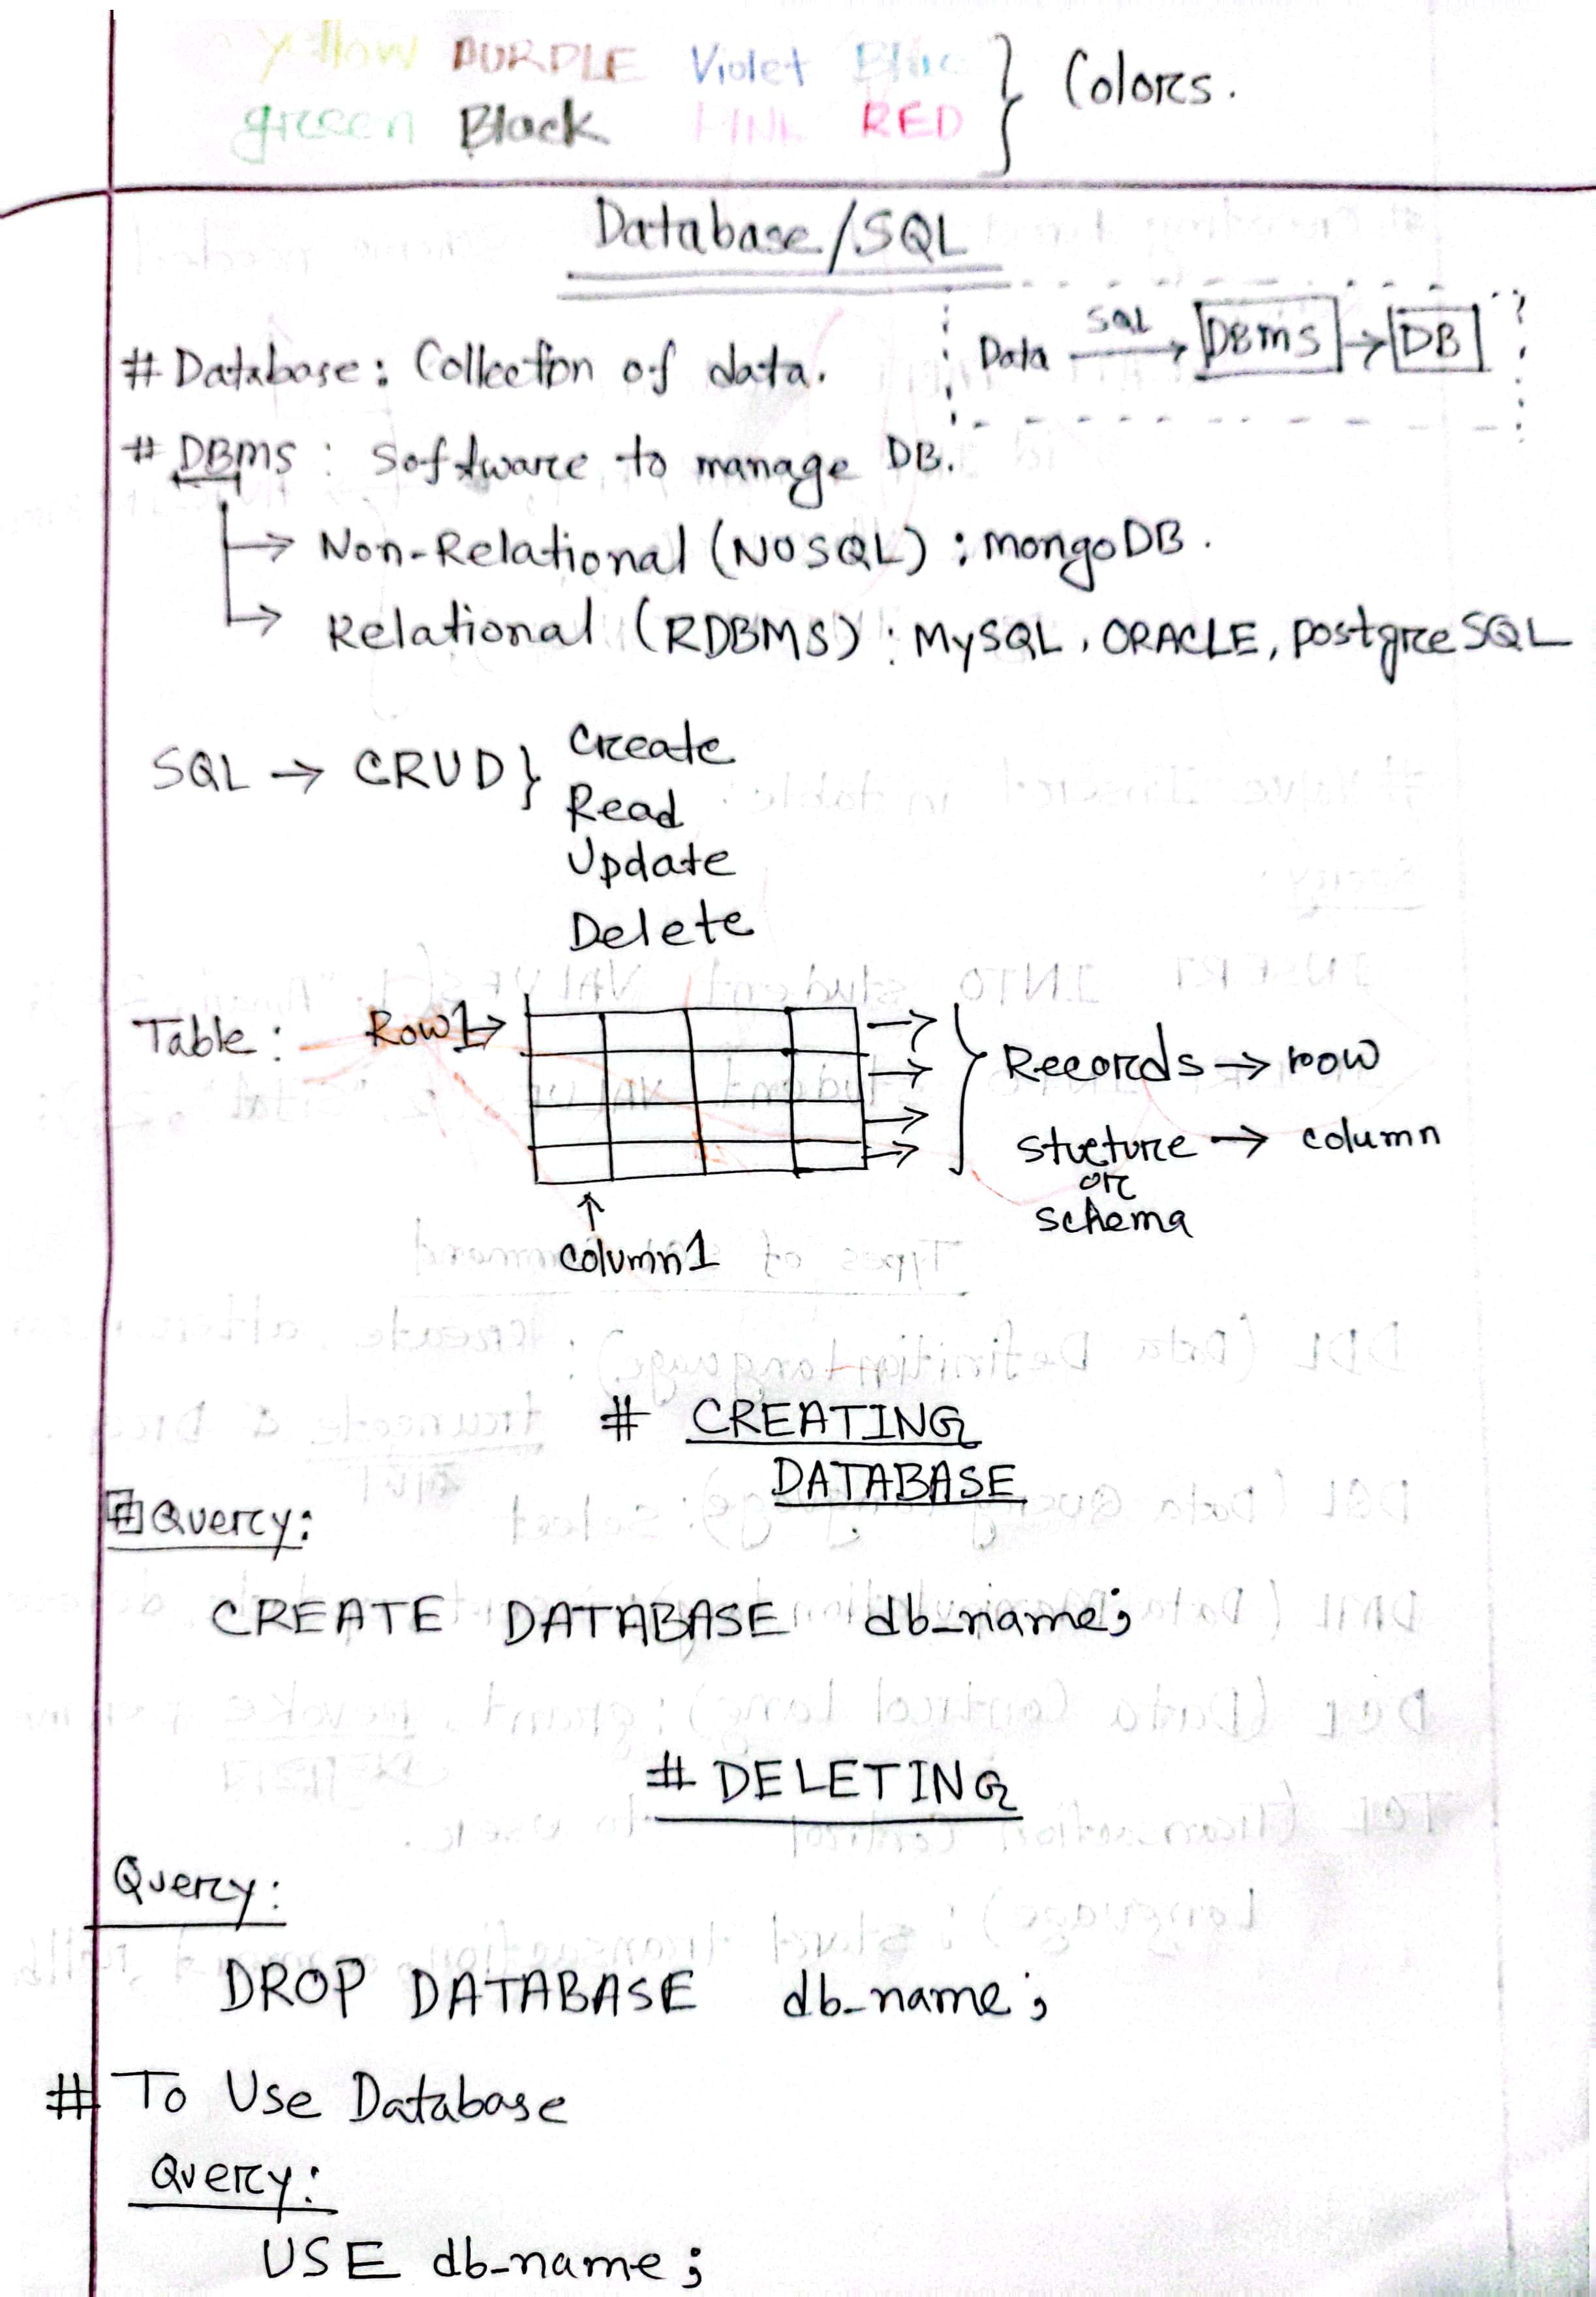 yellow PURPLE Violet Blue
green Black PINK RED } Colors.
Database/SQL
Data SQL → DBMS → DB
# Database: Collection of data.
# DBMS : Software to manage DB.
→ Non-Relational (NOSQL) : mongoDB.
→ Relational (RDBMS) : MySQL, ORACLE, postgreSQL
SQL → CRUD } Create
Read
Update
Delete
Table: Row1→
Records → row
Stucture → column
or
schema
↑
column1
# CREATING
DATABASE
# Query:
CREATE DATABASE db_name;
# DELETING
Query:
DROP DATABASE db_name;
# To Use Database
Query:
USE db_name;